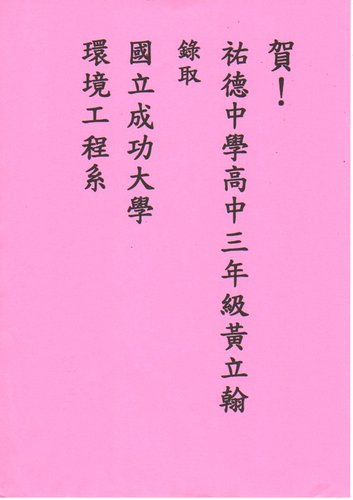 賀！
祐德中學高中三年級黃立翰
錄取
國立成功大學
環境工程系